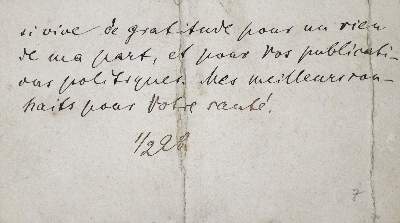 si vive de gratitude pour un rien
de ma part, et pour Vos publicati-
ons politiques. Mes meilleurs sou-
haits pour Votre santé.
1/2 98.
7